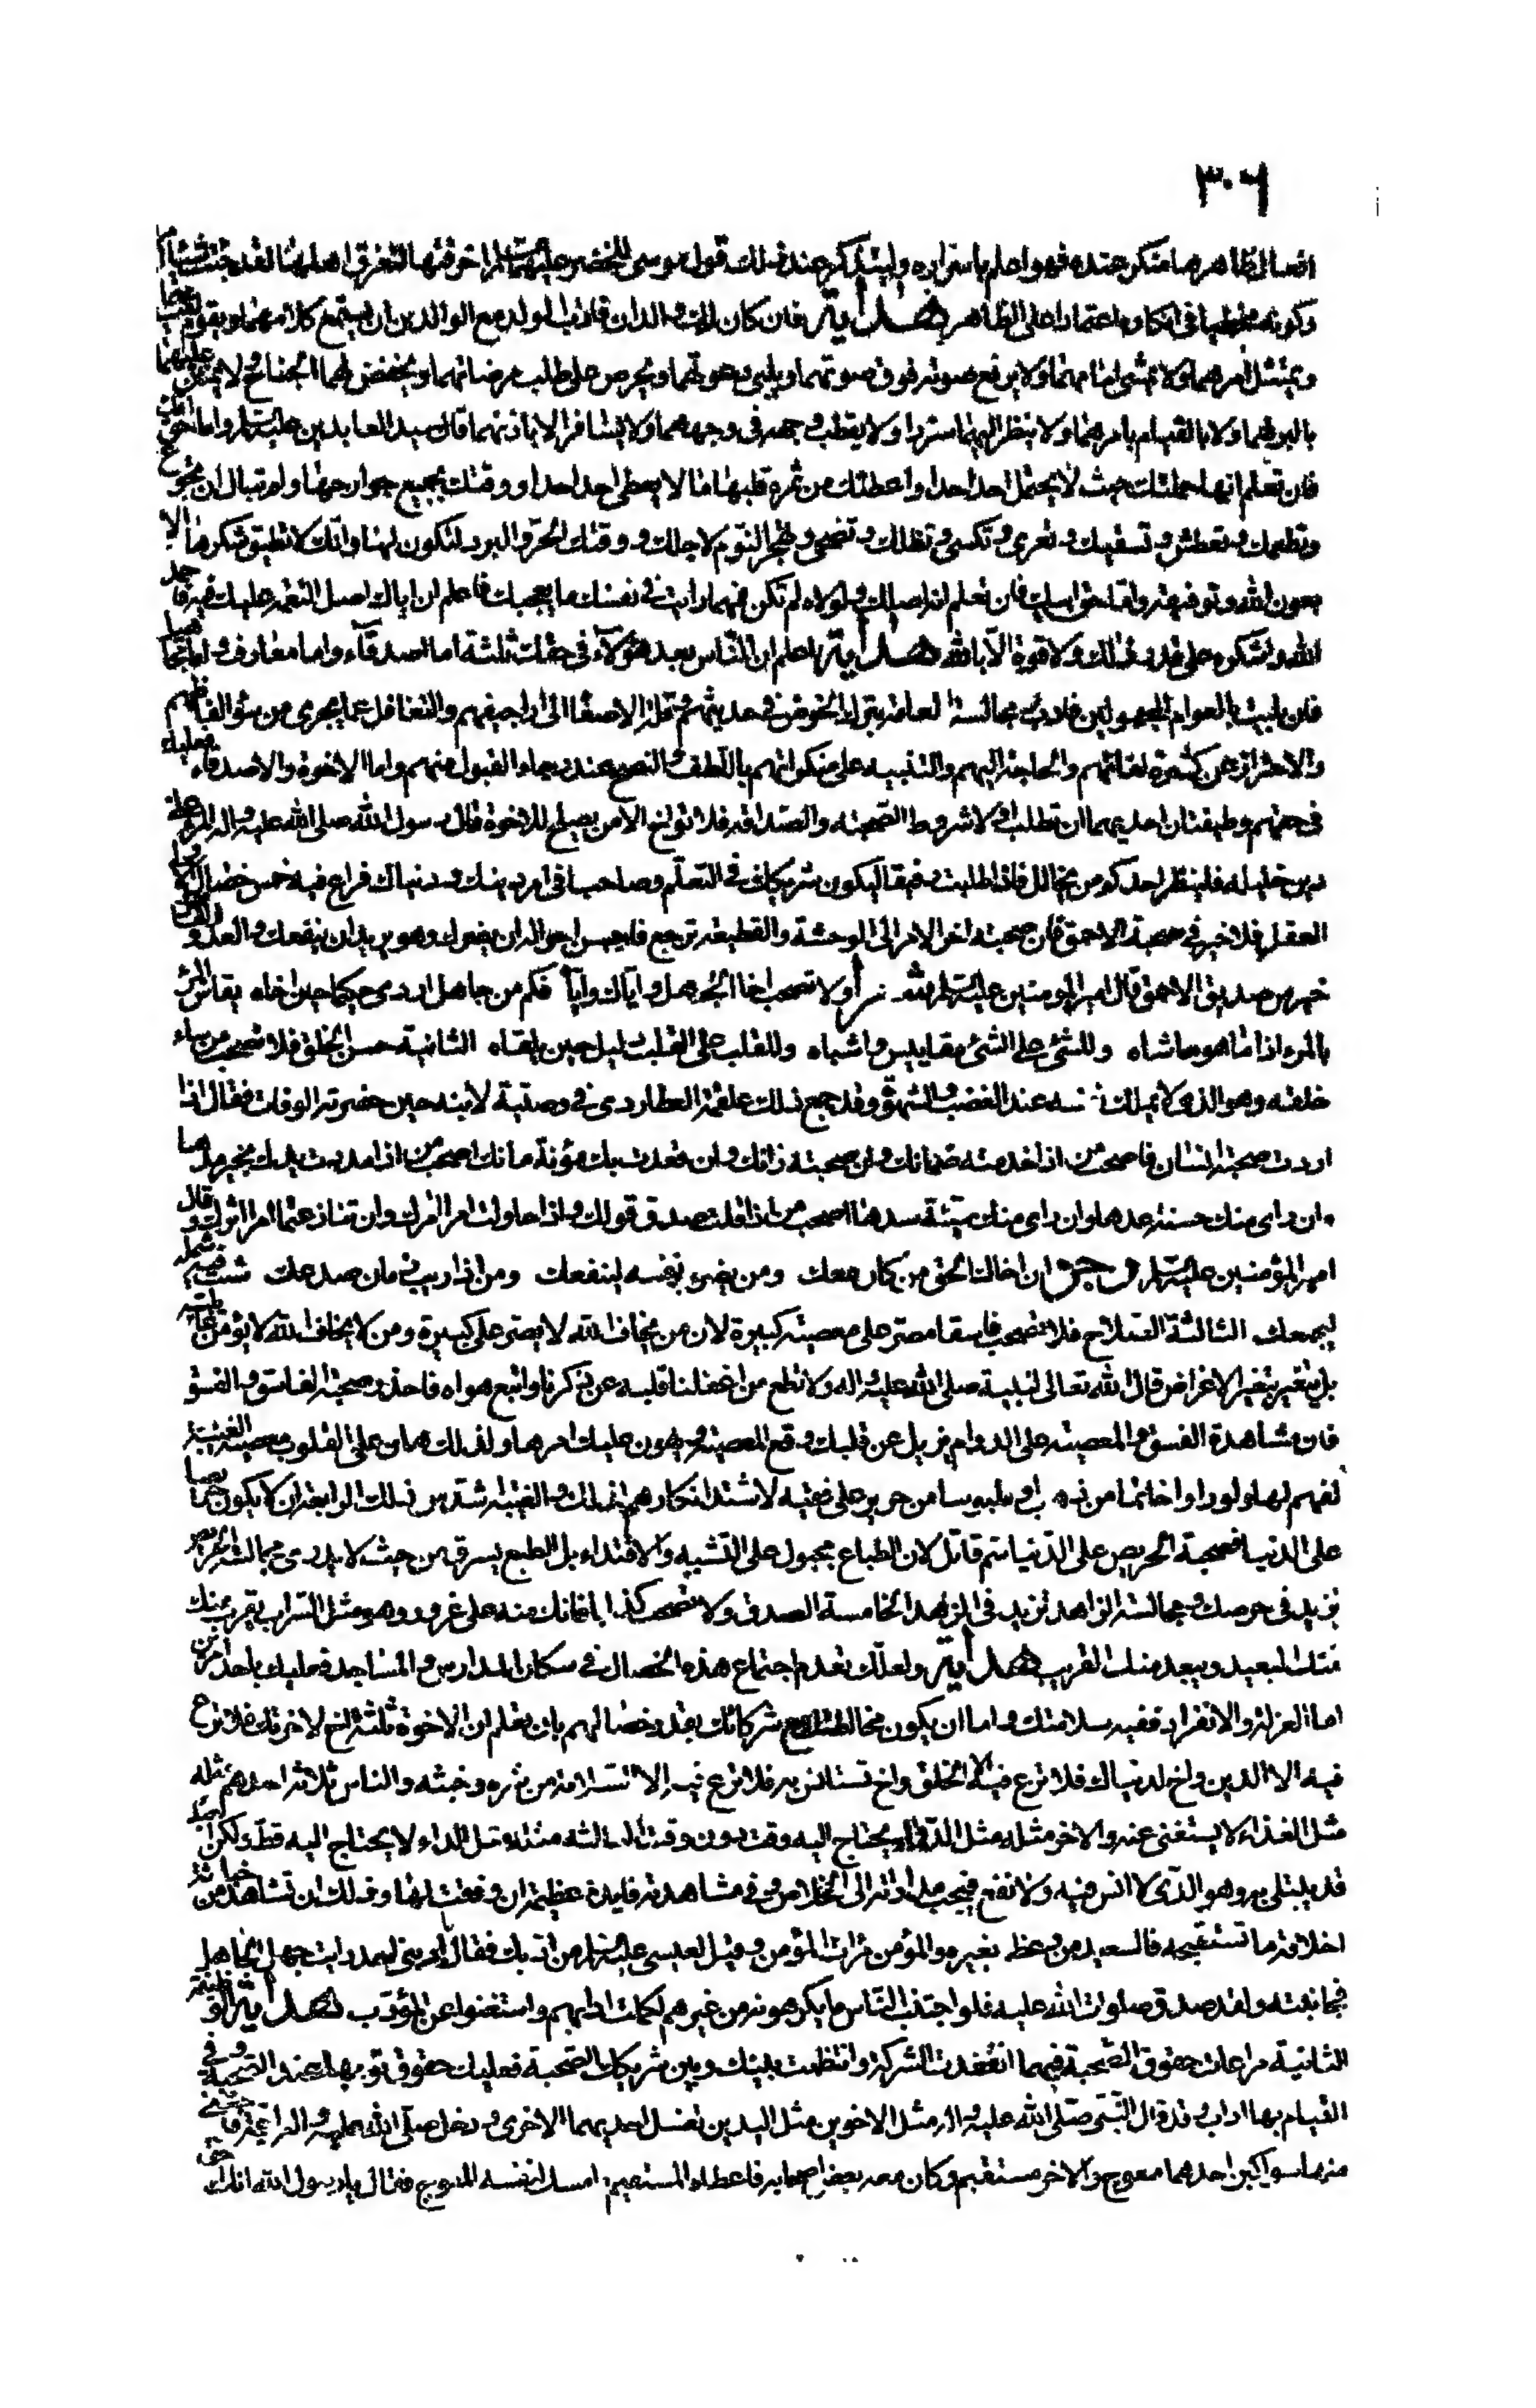 ٣٠٦
افعال ظاهرها منكر عنده فهو اعلم باسراره وليتذكر عند ذلك قول موسى للخضر عليهما السلام اخرقتها لتغرق اهلها لقد جئت شيئا امرا
وكونه مخطيا في انكاره اعتمادا على الظاهر هداية فان كان لك والدان فاداب الولد مع الوالدين ان يستمع كلامهما ويقوم لقيامهما
ويمتثل امرهما ولا يمشي امامهما ولا يرفع صوته فوق صوتهما ويلبي دعوتهما ويحرص على طلب مرضاتهما ويخفض لهما الجناح ولا يمن عليهما
بالبر لهما ولا بالقيام بامرهما ولا ينظر اليهما شزرا ولا يقطب وجهه في وجههما ولا يسافر الا باذنهما قال سيد العابدين عليه السلام واما حق امك
فان تعلم انها حملتك حيث لا يحتمل احد احدا واعطتك من ثمرة قلبها ما لا يعطى احد احدا ووقتك بجميع جوارحها ولم تبال ان تجوع
وتطعمك وتعطش وتسقيك وتعرى وتكسى وتظلك وتضحى وتهجر النوم لاجلك ووقتك الحر والبرد لتكون لها وانك لا تطيق شكرها الا
بعون الله وتوفيقه واما حق ابيك فان تعلم انه اصلك ولولاه لم تكن فمهما رايت في نفسك ما يعجبك فاعلم ان اباك اصل النعمة عليك فيه فاحمد
الله واشكره على قدر ذلك ولا قوة الا بالله هداية اعلم ان الناس بعد هؤلاء في حقك ثلثة اما اصدقاء واما معارف واما مجاهيل
فان بليت بالعوام المجهولين فاداب مجالسة العامة ترك الخوض في حديثهم وقلة الاصغاء الى اراجيفهم والتغافل عما يجري من سوء الفاظهم
والاحتراز عن كثرة لقائهم والحاجة اليهم والتنبيه على منكراتهم باللطف والنصح عند رجاء القبول منهم واما الاخوة والاصدقاء فعليك
في حقهم وظيفتان احديهما ان تطلب اولا شروط الصحبة والصداقة فلا تواخ الا من يصلح للاخوة قال رسول الله صلى الله عليه واله المرء على
دين خليله فلينظر احدكم من يخالل فاذا طلبت رفيقا ليكون شريكك في التعلم وصاحبا في امر دينك ودنياك فراع فيه خمس خصال الاولى
العقل فلا خير في صحبة الاحمق فان صحبته اخر الامر الى الوحشة والقطيعة ترجع فاحسن احواله ان يضرك وهو يريد ان ينفعك والعدو العاقل
خير من صديق الاحمق قال امير المؤمنين عليه السلام شعر ولا تصحب اخا الجهل واياك واياه فكم من جاهل اردى حكيما حين اخاه يقاس المرء
بالمرء اذا ما هو ماشاه وللشئ على الشئ مقاييس واشباه وللقلب على القلب دليل حين يلقاه الثانية حسن الخلق فلا تصحب من ساء
خلقه وهو الذي لا يملك نفسه عند الغضب والشهوة وقد جمع ذلك علقمة العطاردي في وصيته لابنه حين حضرته الوفات فقال اذا
اردت صحبة انسان فاصحب من اذا خدمته صانك وان صحبته زانك وان قعدت بك مؤنة مانك اصحب من اذا مددت يدك بخير مدها
وان راى منك حسنة عدها وان راى منك سيئة سدها اصحب من اذا قلت صدق قولك واذا حاولت امرا امرك وان تنازعتما امرا اثرك وقال
امير المؤمنين عليه السلام رجز ان اخاك الحق من كان معك ومن يضر نفسه لينفعك ومن اذا ريب زمان صدعك شتت فيه شمله
ليجمعك الثالثة الصلاح فلا تصحب فاسقا مصر على معصية كبيرة لان من يخاف الله لا يصر على كبيرة ومن لا يخاف الله لا يؤمن غائلته
بل يتغير بتغير الاغراض قال الله تعالى لنبيه صلى الله عليه واله ولا تطع من اغفلنا قلبه عن ذكرنا واتبع هواه فاحذر صحبة الفاسق والفسق
فان مشاهدة الفسق والمعصية على الدوام يزيل عن قلبك وقع المعصية ويهون عليك امرها ولذلك هان على القلوب معصية الغيبة
لفهم لها ولو راوا خاتما من ذهب او ملبوسا من حرير على فقيه لاشتد انكارهم لذلك والغيبة اشد من ذلك الرابعة ان لا يكون حريصا
على الدنيا فصحبة الحريص على الدنيا سم قاتل لان الطباع مجبول على التشبيه والاقتداء بل الطبع يسرق من حيث لا يدرى مجالسة الحريص
تزيد في حرصك ومجالسة الزاهد تزيد في الزهد الخامسة الصدق ولا تصحب كذابا فانك منه على غرور وهو مثل السراب يقرب منك
منك البعيد ويبعد منك القريب هداية ولعلك تعدم اجتماع هذه الخصال في سكان المدارس والمساجد فعليك باحد امرين
اما العزلة والانفراد ففيه سلامتك واما ان يكون مخالطتك مع شركائك بقدر خصالهم بان يعلم ان الاخوة ثلثة اخ لاخرتك فلا تراع
فيه الا الدين واخ لدنياك فلا تراع فيه الا الخلق واخ تستانس به فلا تراع فيه الا السلامة من شره وخبثه والناس ثلاثة احدهم مثله
مثل الغذاء لا يستغنى عنه والاخر مثله مثل الدواء يحتاج اليه وقت دون وقت والثالث مثله مثل الداء لا يحتاج اليه قط ولكن العبد
قد يبتلى به وهو الذي لا انس فيه ولا نفع فيجب مداراته الى الخلاص وفي مشاهدته فايدة عظيمة ان وفقت لها وذلك ان تشاهد من خبائثه
اخلاقه ما تستقبحه فالسعيد من وعظ بغيره والمؤمن مراة المؤمن وقيل لعيسى عليه السلام من ادبك فقال ما ادبني احد رايت جهل الجاهل
فجانبته ولقد صدق صلوات الله عليه فلو اجتنب الناس ما يكرهونه من غيرهم لكملت ادابهم واستغنوا عن المؤدب هداية الوظيفة
الثانية مراعات حقوق الصحبة فيهما انعقدت الشركة وانتظمت بينك وبين شريكك الصحبة فعليك حقوق توجبها عند الصحبة وفي
القيام بها اداب وقد قال النبي صلى الله عليه واله مثل الاخوين مثل اليدين تغسل احديهما الاخرى ودخل صلى الله عليه واله اجمة فاجتنى
منها سواكين احدهما معوج والاخر مستقيم وكان معه بعض اصحابه فاعطاه المستقيم وامسك لنفسه المعوج فقال يا رسول الله انك احق